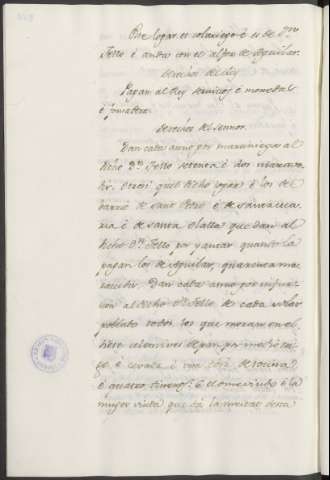 Este logar es solariego é es de D.n
Tello é anda con el alfoz de Aguilar.
Derechos del Rey
Pagan al Rey servicios é monedas
é fonsadera.
Derechos del sennor.
Dan cada anno por marzadga al
dicho D.n Tello setenta é dos maravedis
é este dicho logar é los del
barrio de Sant Pedro é de Santa
é de Santa Olalla que dan al
dicho D.n Tello por yantar quando la
pagan los de Aguilar, quarenta ma
ravedis. Dan cada anno por infur
cion al dicho D.n Tello de cada solar
poblado todos los que moran en el
de pan por medio tri
go é cevada é una de tocino
é quatro dineros: é el ome viudo é la
muger viuda que dá la meitad desta